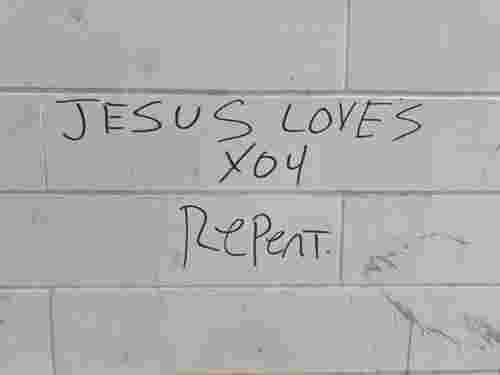 JESUS LOVES
YOU
Repent.